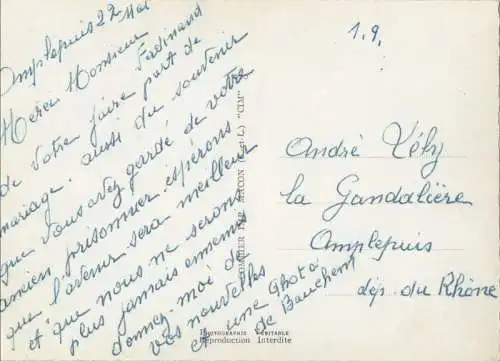 Amplepuis 22 Mai
Merci Monsieur Ferdinand
de votre faire part de
mariage. aussi du souvenir
que vous avez gardé de votre
ancien prisonnier. espérons
que l'avenir sera meilleur
et que nous ne serons
plus jamais ennemis
donnez moi de
vos nouvelles
et une photo
de Bauchent
1.9.
MACON (S.-&-L.) "CIM"
André Vély
la Gandalière
Amplepuis
dép. du Rhône
PHOTOGRAPHIE VÉRITABLE
Reproduction Interdite